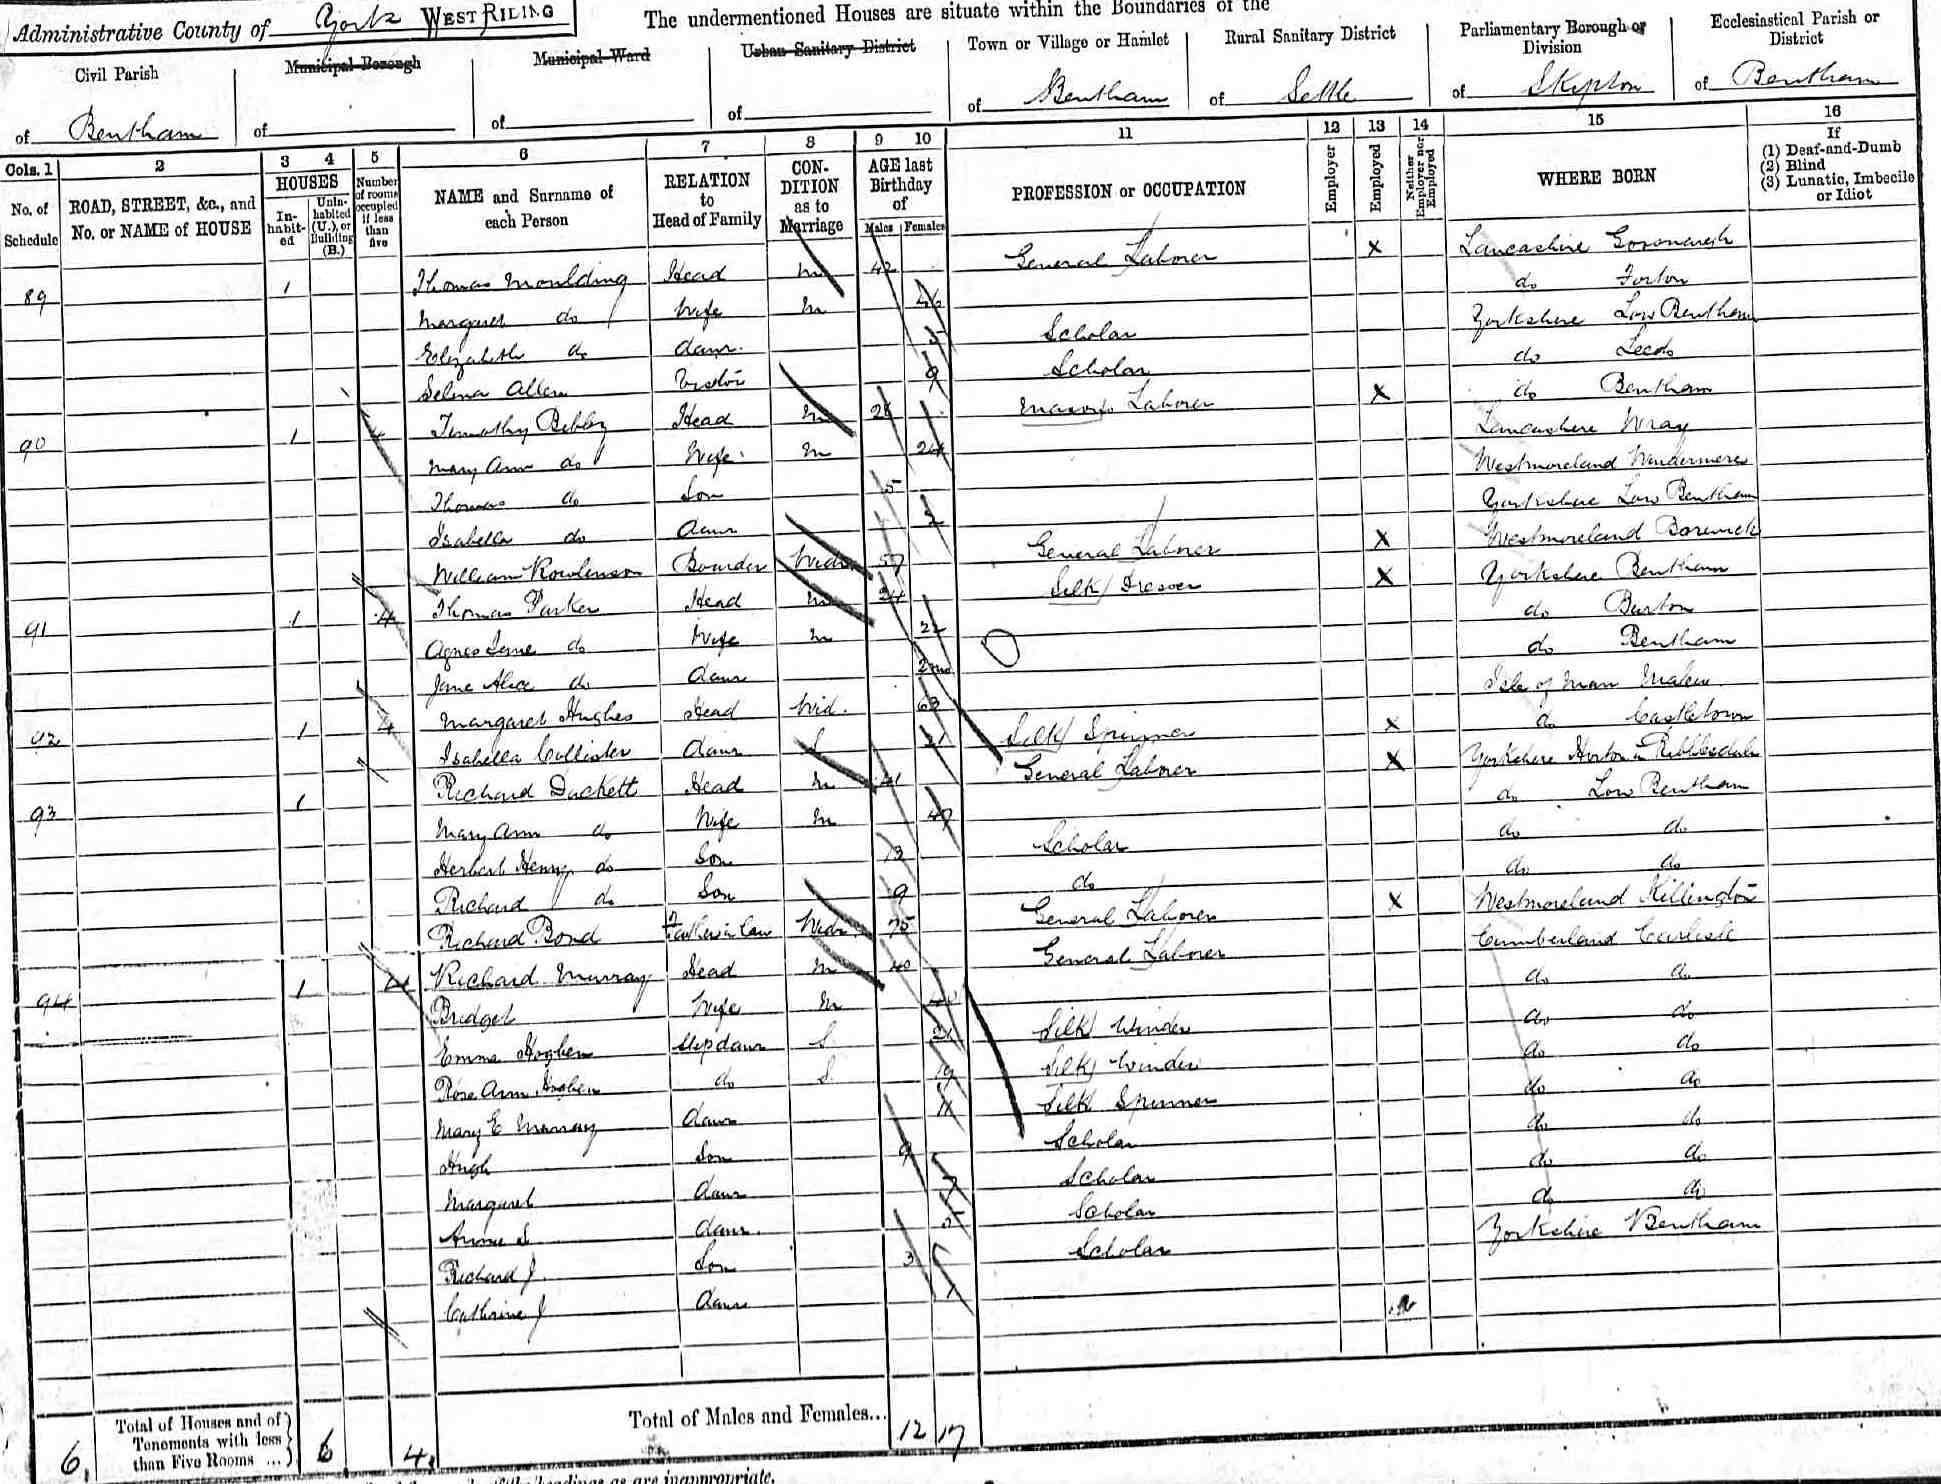 Administrative County of York WEST RIDING
The undermentioned Houses are situate within the Boundaries of the
Civil Parish
of Bentham
Municipal Borough
of
Municipal Ward
of
Urban Sanitary District
of
Town or Village or Hamlet
of Bentham
Rural Sanitary District
of Settle
Parliamentary Borough or Division
of Skipton
Ecclesiastical Parish or District
of Bentham
Cols. 1 2 3 4 5 6 7 8 9 10 11 12 13 14 15 16
No. of Schedule
ROAD, STREET, &c., and No. or NAME of HOUSE
HOUSES
In-habit-ed
Unin-habited (U.), or Building (B.)
Number of rooms occupied if less than five
NAME and Surname of each Person
RELATION to Head of Family
CON-DITION as to Marriage
AGE last Birthday of
Males Females
PROFESSION or OCCUPATION
Employer
Employed
Neither Employer nor Employed
WHERE BORN
If
(1) Deaf-and-Dumb
(2) Blind
(3) Lunatic, Imbecile or Idiot
89 1 Thomas Moulding Head M 42 General Laborer X Lancashire
Margaret do Wife M 46 do Forton
Elizabeth do Daur. 5 Scholar Yorkshire Low Bentham
Selina Allen Visitor 9 Scholar do Leeds
90 1 4 Timothy Bibby Head M 28 Masons Laborer X do Bentham
Mary Ann do Wife M 24 Lancashire Wray
Thomas do Son 5 Westmoreland Windermere
Isabella do Daur 2 Yorkshire Low Bentham
William Rowlenson Boarder Widr 57 General Laborer X Westmoreland
91 1 4 Thomas Parker Head M 24 Silk Dresser X Yorkshire Bentham
Agnes Jane do Wife M 22 do Burton
Jane Alice do Daur 2mo do Bentham
92 1 4 Margaret Hughes Head Wid. 63 Isle of Man Malew
Isabella Collister Daur S 21 Silk Spinner X do Castletown
93 1 Richard Duckett Head M 41 General Laborer X Yorkshire Horton in Ribblesdale
Mary Ann do Wife M 47 do Low Bentham
Herbert Henry do Son 13 Scholar do do
Richard do Son 9 do do do
Richard Bond Father in law Widr. 75 General Laborer X Westmoreland Killington
94 1 4 Richard Murray Head M 40 General Laborer Cumberland Carlisle
Bridget Wife M do do
Emma Hoghen Stepdaur S 21 Silk Winder do do
Rose Ann do S. 19 Silk Winder do do
Mary E Murray Daur 11 Silk Spinner do do
Hugh Son 9 Scholar do do
Margaret Daur 7 Scholar do do
Annie S Daur. 5 Scholar do do
Richard J. Son 3 Scholar Yorkshire Bentham
Cathrine J Daur 1
6. Total of Houses and of Tenements with less than Five Rooms ... 6 4. Total of Males and Females... 12 17
of the headings as are inappropriate.